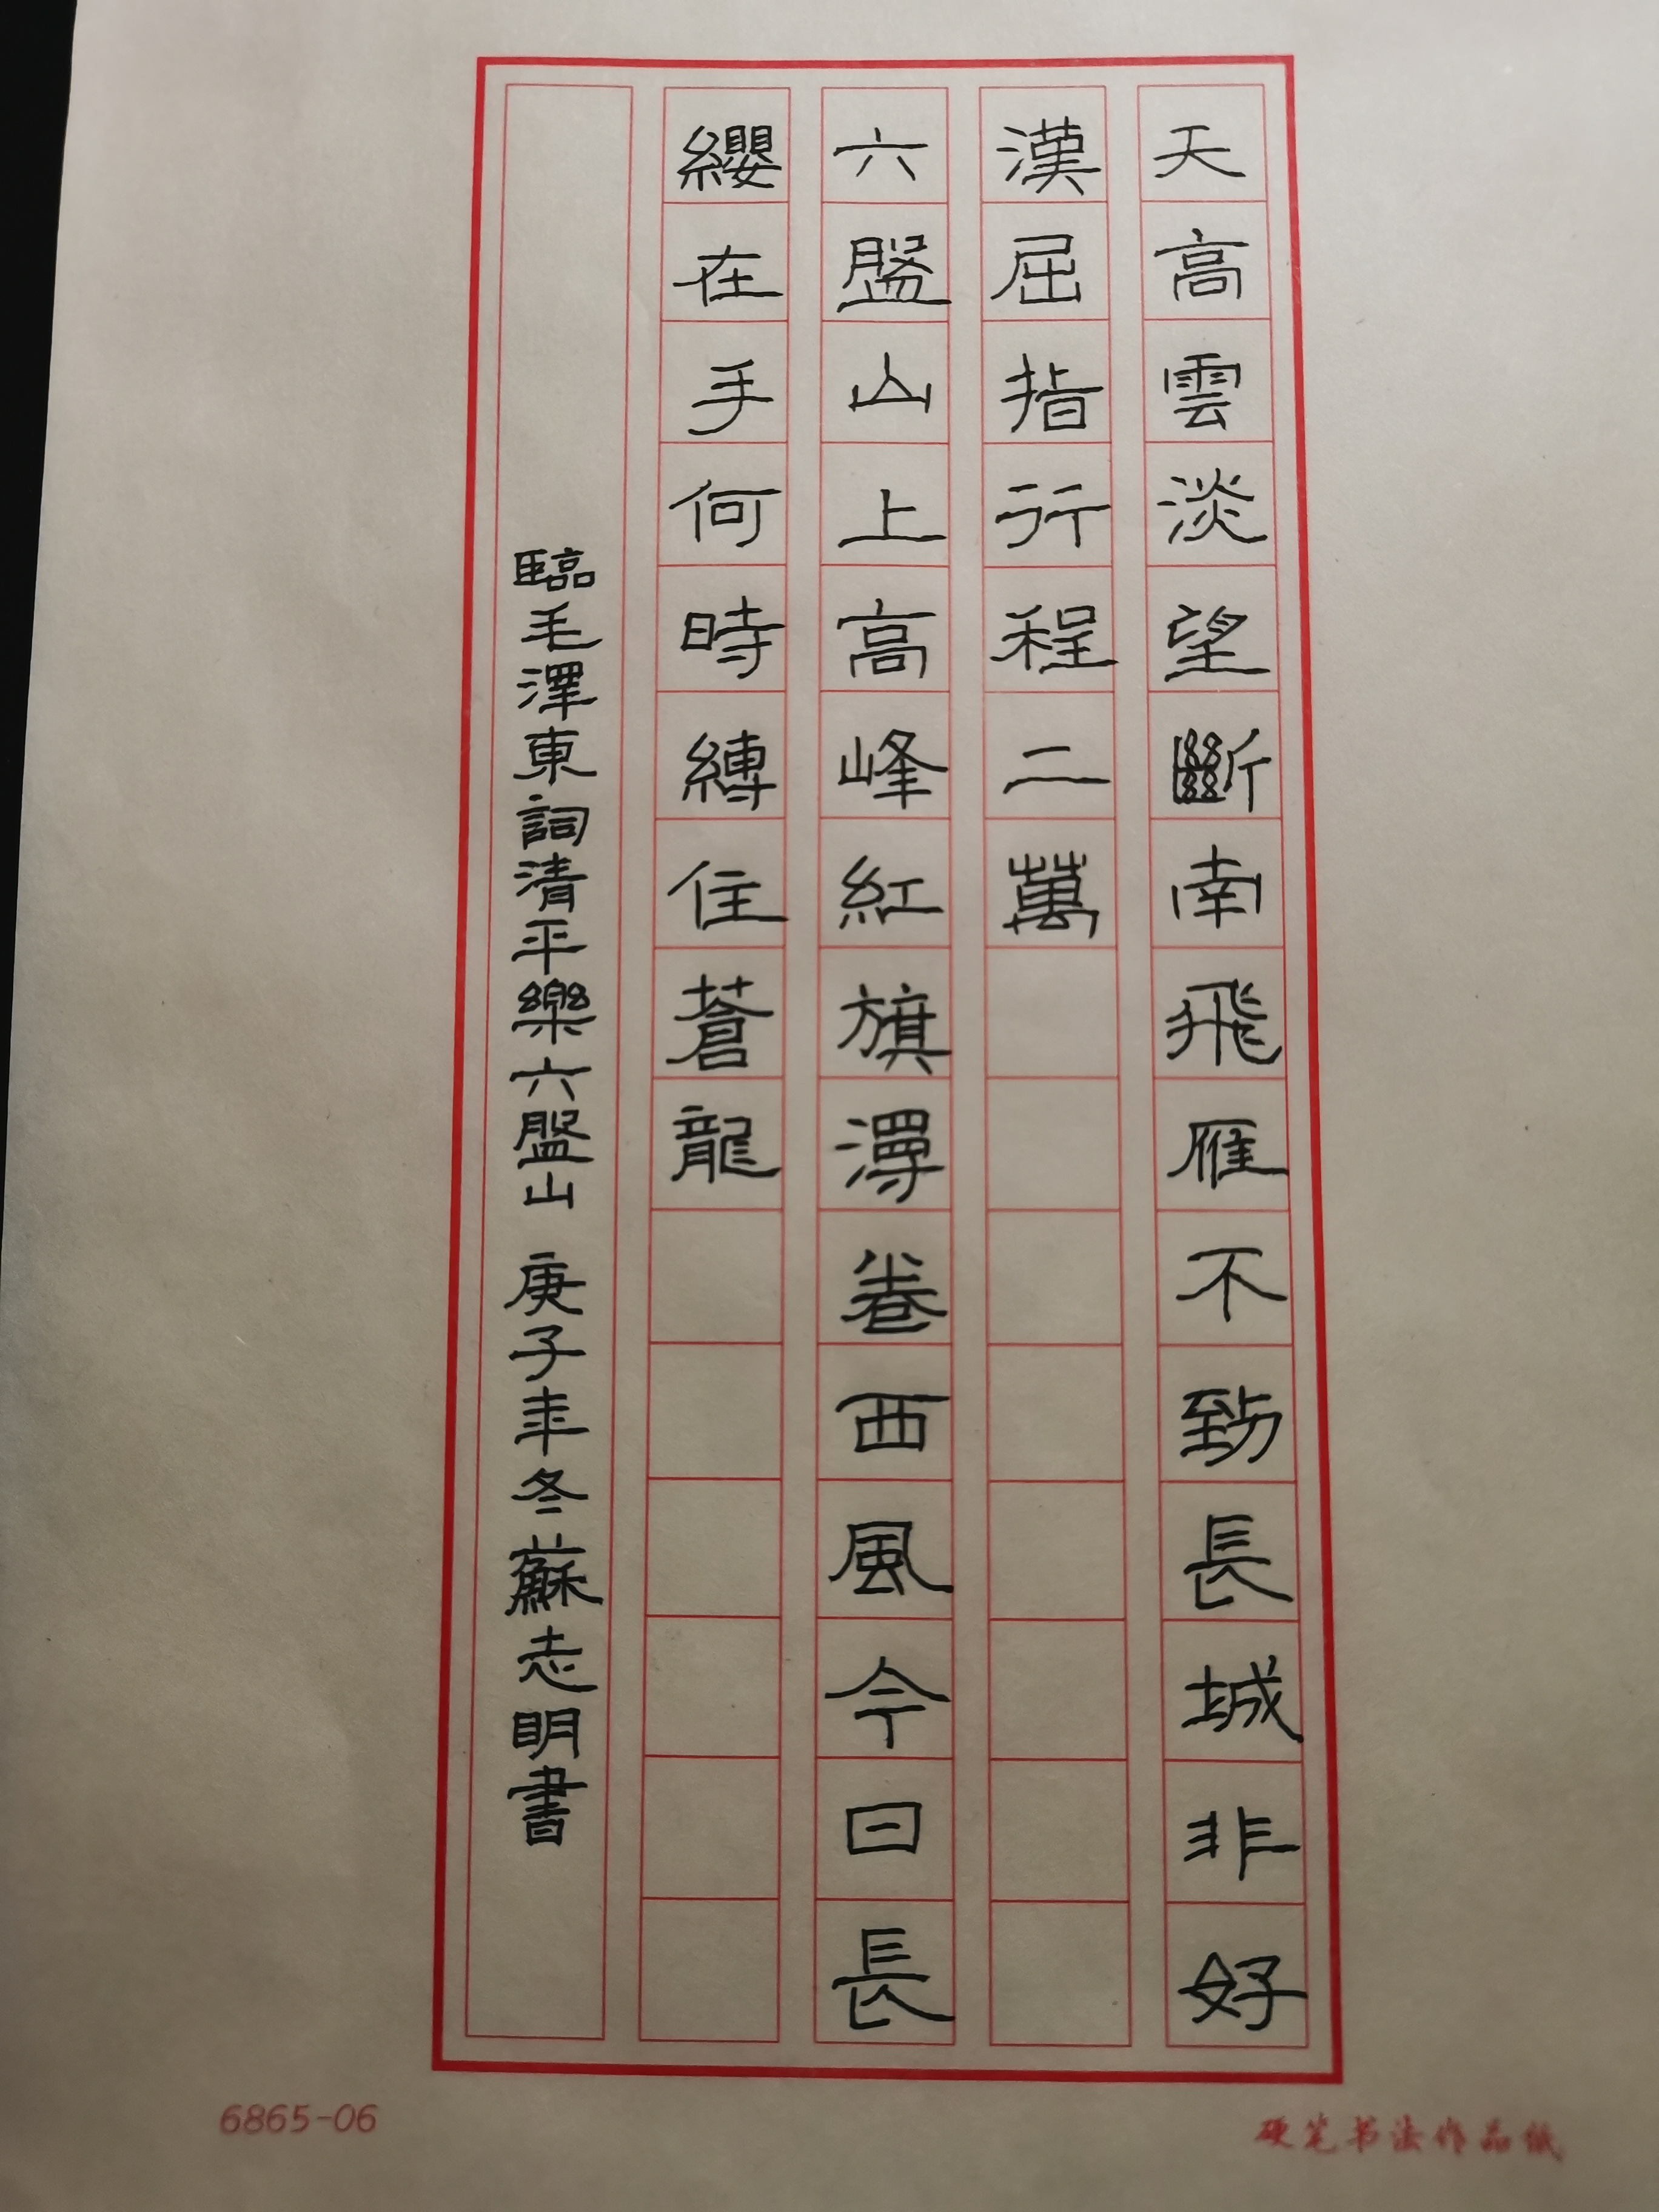 天高雲淡望斷南飛雁不到長城非好
漢屈指行程二萬
六盤山上高峰紅旗漫卷西風今日長
纓在手何時縛住蒼龍
臨毛澤東詞清平樂六盤山 庚子年冬蘇志明書
6865-06
硬笔书法作品纸